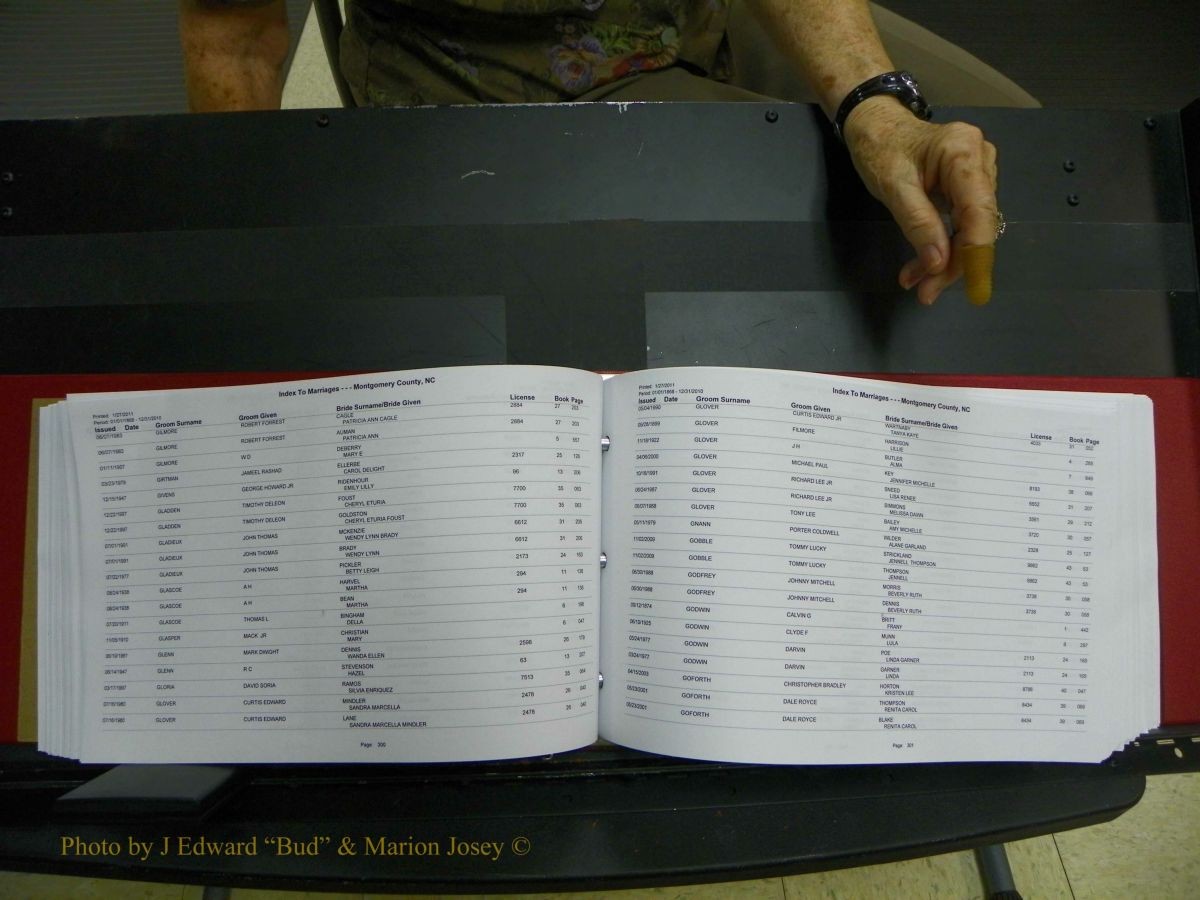 Index To Marriages - - - Montgomery County, NC
Printed: 1/27/2011
Period: 01/01/1868 - 12/31/2010
Issued Date Groom Surname Groom Given Bride Surname/Bride Given License Book Page
06/07/1983 GILMORE ROBERT FORREST CAGLE 2884 27 203
PATRICIA ANN CAGLE
06/07/1983 GILMORE ROBERT FORREST AUMAN 2884 27 203
PATRICIA ANN
01/11/1907 GILMORE W D DEBERRY 5 557
MARY E
03/23/1979 GIRTMAN JAMEEL RASHAD ELLERBE 2317 25 126
CAROL DELIGHT
12/15/1947 GIVENS GEORGE HOWARD JR RIDENHOUR 96 13 206
EMILY LILLY
12/22/1997 GLADDEN TIMOTHY DELEON FOUST 7700 35 063
CHERYL ETURIA
12/22/1997 GLADDEN TIMOTHY DELEON GOLDSTON 7700 35 063
CHERYL ETURIA FOUST
07/01/1991 GLADIEUX JOHN THOMAS MCKENZIE 6612 31 205
WENDY LYNN BRADY
07/01/1991 GLADIEUX JOHN THOMAS BRADY 6612 31 205
WENDY LYNN
07/22/1977 GLADIEUX JOHN THOMAS PICKLER 2173 24 163
BETTY LEIGH
08/24/1938 GLASCOE A H HARVEL 294 11 136
MARTHA
08/24/1938 GLASCOE A H BEAN 294 11 136
MARTHA
07/20/1911 GLASCOE THOMAS L BINGHAM 6 168
DELLA
11/05/1910 GLASPER MACK JR CHRISTIAN 6 047
MARY
GLENN MARK DWIGHT DENNIS 2598 26 179
WANDA ELLEN
06/14/1947 GLENN R C STEVENSON 63 13 207
HAZEL
03/17/1997 GLORIA DAVID SORIA RAMOS 7513 35 064
SILVIA ENRIQUEZ
07/16/1980 GLOVER CURTIS EDWARD MINDLER 2478 26 042
SANDRA MARCELLA
07/16/1980 GLOVER CURTIS EDWARD LANE 2478 26 042
SANDRA MARCELLA MINDLER
Page 300
Index To Marriages - - - Montgomery County, NC
Printed: 1/27/2011
Period: 01/01/1868 - 12/31/2010
Issued Date Groom Surname Groom Given Bride Surname/Bride Given License Book Page
05/04/1990 GLOVER CURTIS EDWARD JR WARTNABY 4033 31 052
TANYA KAYE
09/28/1899 GLOVER FILMORE HARRISON 4 288
LILLIE
11/18/1922 GLOVER J H BUTLER 7 849
ALMA
04/06/2000 GLOVER MICHAEL PAUL KEY 8193 38 066
JENNIFER MICHELLE
10/18/1991 GLOVER RICHARD LEE JR SNEED 6652 31 207
LISA RENEE
06/24/1987 GLOVER RICHARD LEE JR SIMMONS 3561 29 212
MELISSA DAWN
GLOVER TONY LEE BAILEY 3720 30 057
AMY MICHELLE
05/11/1979 GNANN PORTER COLDWELL WILDER 2328 25 127
ALANE GARLAND
11/02/2009 GOBBLE TOMMY LUCKY STRICKLAND 9862 43 53
JENNELL THOMPSON
11/02/2009 GOBBLE TOMMY LUCKY THOMPSON 9862 43 53
JENNELL
06/30/1988 GODFREY JOHNNY MITCHELL MORRIS 3738 30 058
BEVERLY RUTH
06/30/1988 GODFREY JOHNNY MITCHELL DENNIS 3738 30 058
BEVERLY RUTH
GODWIN CALVIN G BRITT 1 442
FRANY
GODWIN CLYDE F MUNN 8 297
LULA
03/24/1977 GODWIN DARVIN POE 2113 24 165
LINDA GARNER
03/24/1977 GODWIN DARVIN GARNER 2113 24 165
LINDA
04/15/2003 GOFORTH CHRISTOPHER BRADLEY HORTON 8786 40 047
KRISTEN LEE
05/23/2001 GOFORTH DALE ROYCE THOMPSON 8434 39 069
RENITA CAROL
05/23/2001 GOFORTH DALE ROYCE BLAKE 8434 39 069
RENITA CAROL
Page 301
Photo by J Edward “Bud” & Marion Josey ©